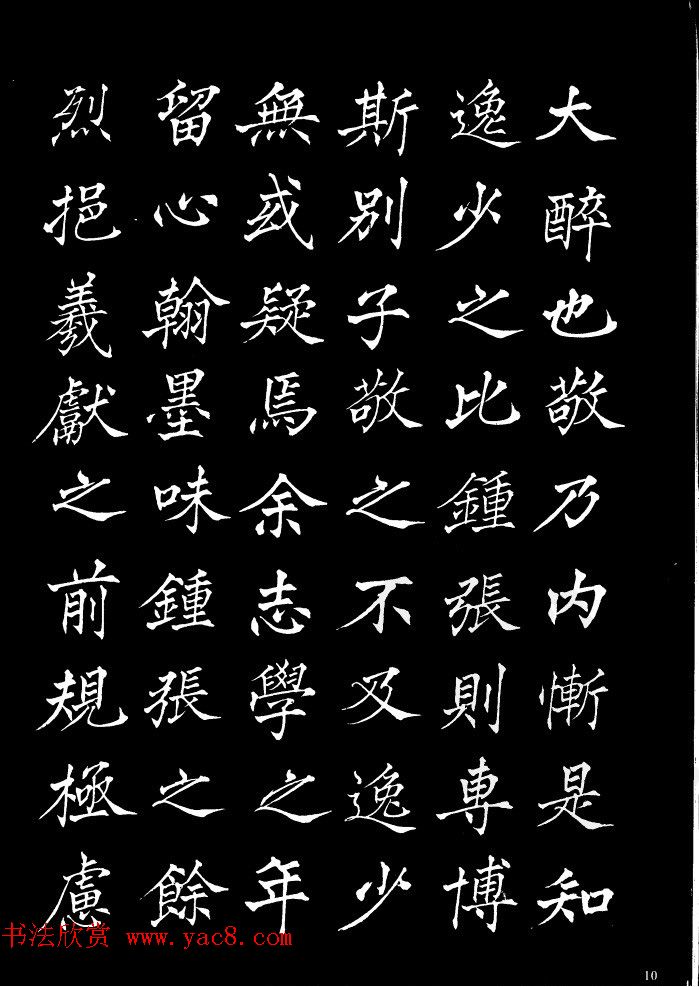 大醉也敬乃内慚是知
逸少之比鍾張則專博
斯別子敬之不及逸少
無或疑焉余志學之年
留心翰墨味鍾張之餘
烈挹羲獻之前規極慮
书法欣赏 www.yac8.com
10